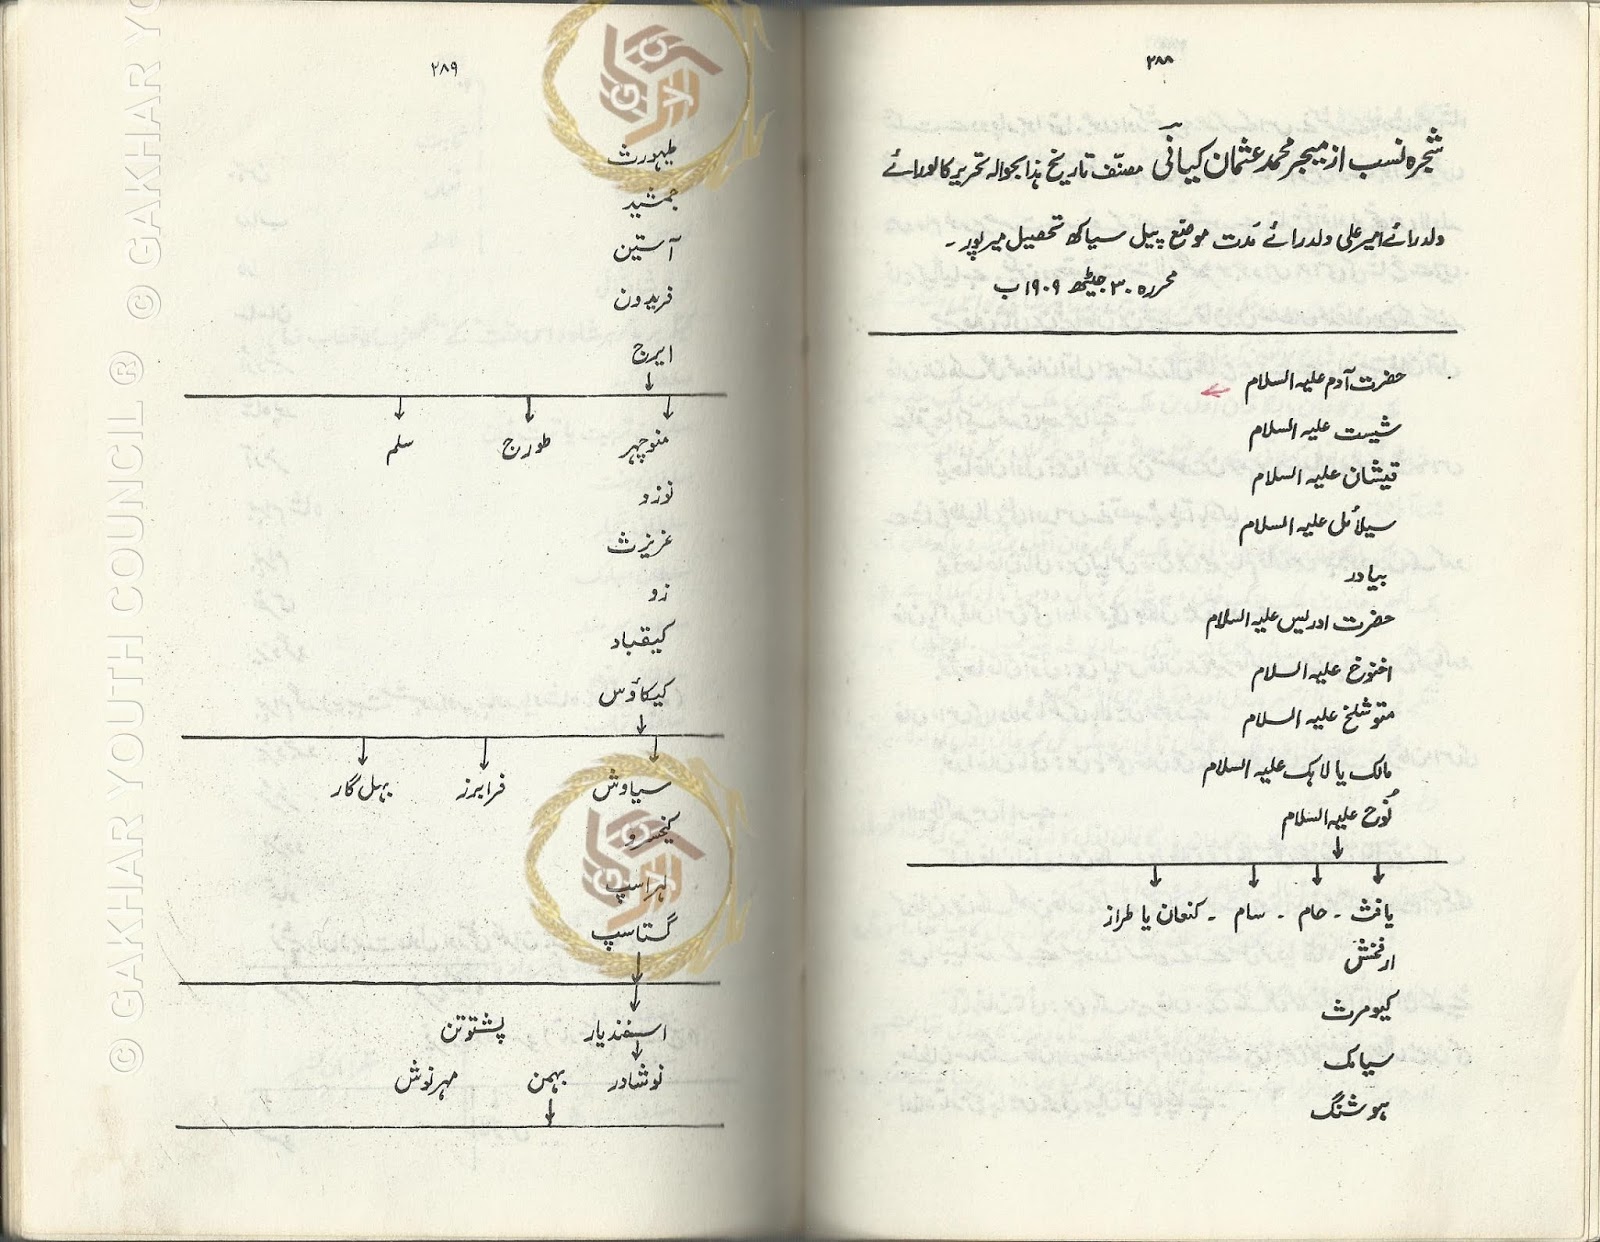 ۲۸۸
شجرہ نسب از میجر محمد عثمان کیانی مصنف تاریخ ہذا بحوالہ تحریر کالو رائے
ولد رائے امیر علی ولد رائے مدت موضع پیل سیاکھ تحصیل میرپور ۔
محررہ ۳۰ جیٹھ ۱۹۰۹ ب
حضرت آدم علیہ السلام
شیست علیہ السلام
قیشان علیہ السلام
سیلائل علیہ السلام
بیادر
حضرت ادریس علیہ السلام
اخنوخ علیہ السلام
متوشلخ علیہ السلام
مالک یا لاہک علیہ السلام
نُوح علیہ السلام
یافث ۔ حام ۔ سام ۔ کنعان یا طراز
ارفخش
کیومرث
سیامک
ہوشنگ
۲۸۹
طہورث
جمشید
آستین
فریدون
ایرج
منوچہر طورج سلم
نوزو
غریزث
زو
کیقباد
کیکاؤس
سیاوش فرابرز بہل گار
کیخسرو
لہراسپ
گستاسپ
اسفندیار پشتوتن
نوشادر بہمن مہرنوش
© GAKHAR YOUTH COUNCIL ® © GAKHAR YO